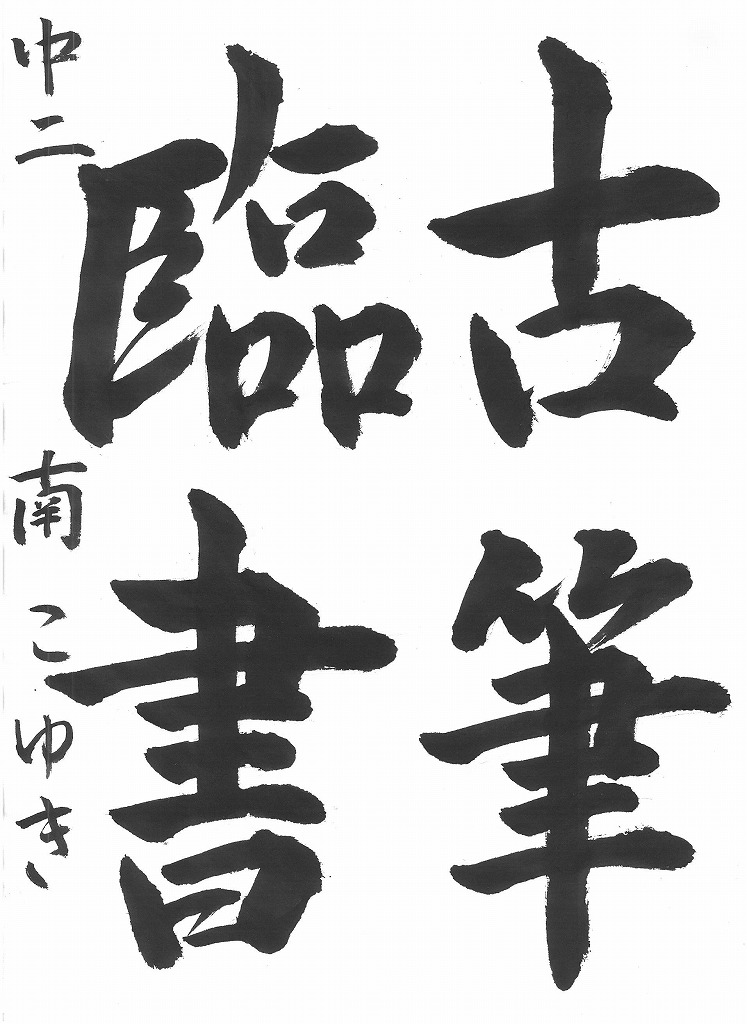 古筆
臨書
中二 南 こゆき